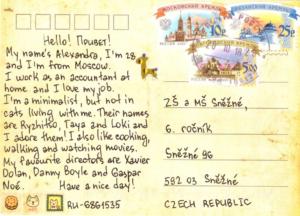 Hello! Привет!
My name's Alexandra, I'm 28
and I'm from Moscow.
I work as an accountant at
home and I love my job.
I'm a minimalist, but not in
cats living with me. Their names
are Ryzhitho, Taya and Loki and
I adore them! I also like cooking,
walking and watching movies.
My favourite directors are Xavier
Dolan, Danny Boyle and Gaspar
Noé. Have a nice day!
RU-6861535
МОСКОВСКИЙ КРЕМЛЬ
10р
КАЗАНСКИЙ КРЕМЛЬ
25р
5.00
ZŠ a MŠ Sněžné,
6. ročník
Sněžné 96
592 03 Sněžné
CZECH REPUBLIC